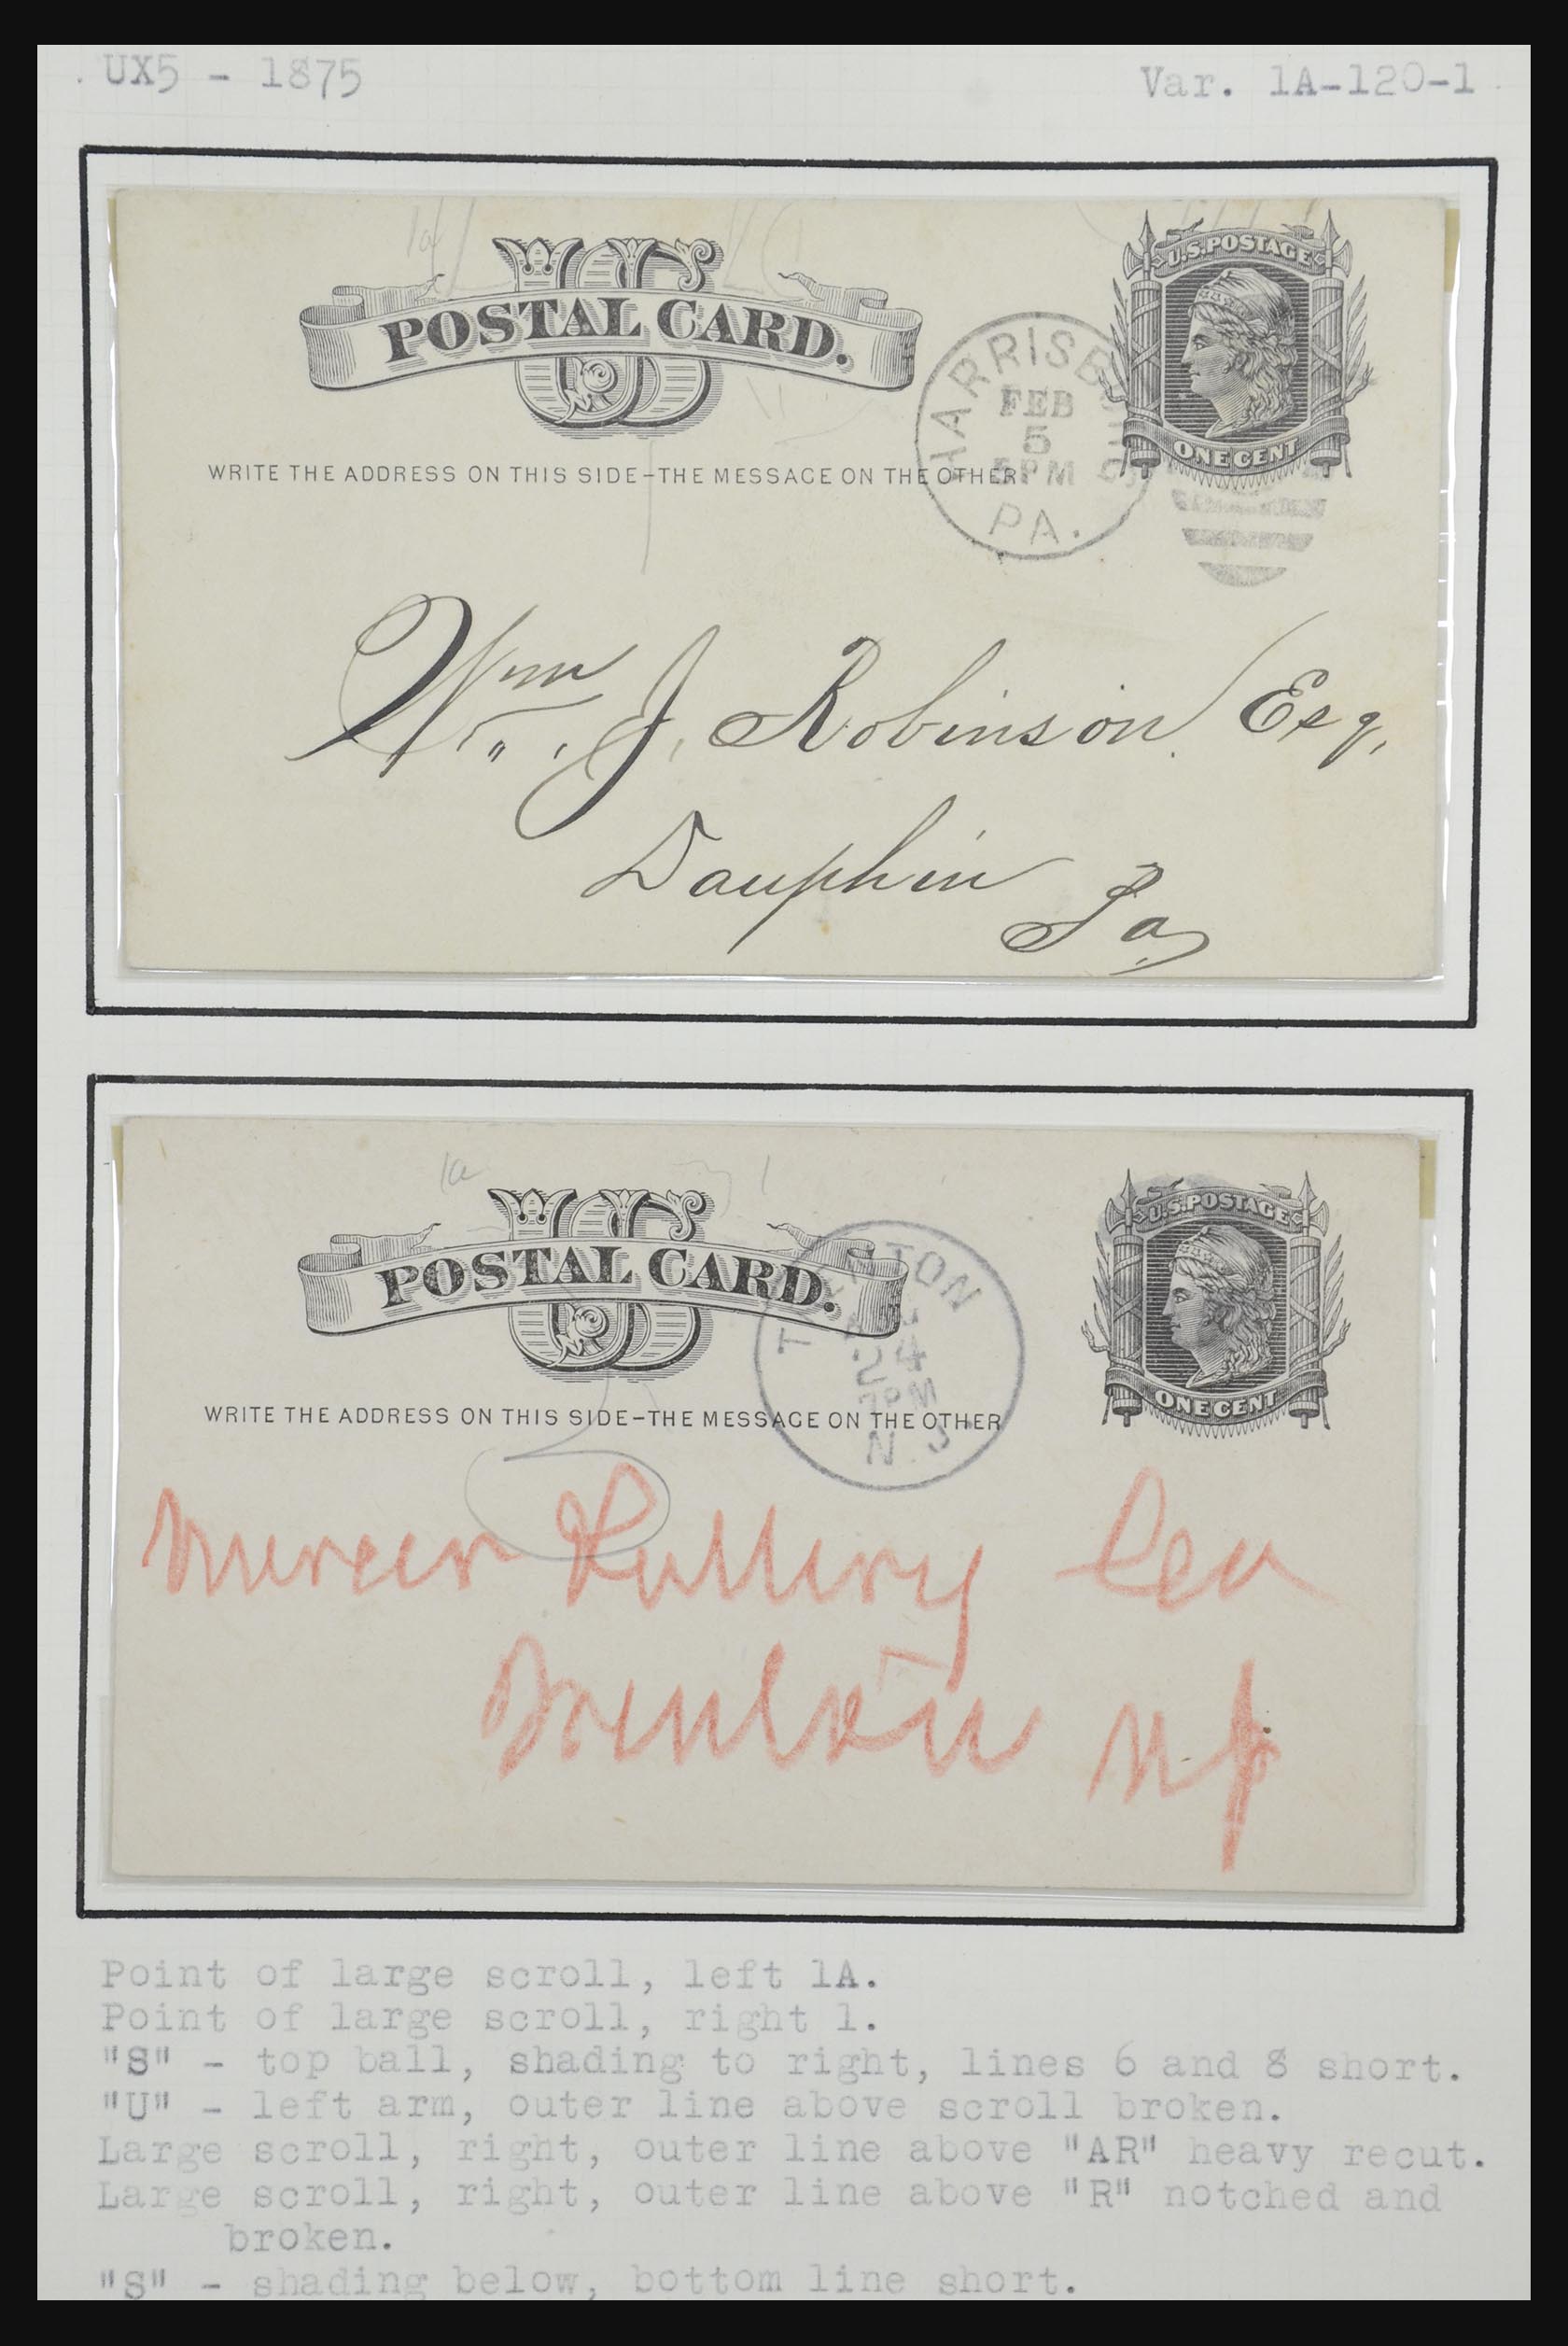 UX5 - 1875
Var. 1A-120-1
1a
US
POSTAL CARD.
U.S. POSTAGE
ONE CENT
HARRISBURG
FEB
5
5PM
PA.
WRITE THE ADDRESS ON THIS SIDE-THE MESSAGE ON THE OTHER
Wm. J. Robinson Esq,
Dauphin
Pa
1a 1
US
POSTAL CARD.
U.S. POSTAGE
ONE CENT
TRENTON
24
7PM
N.J.
WRITE THE ADDRESS ON THIS SIDE-THE MESSAGE ON THE OTHER
Mercer
N.J.
Point of large scroll, left 1A.
Point of large scroll, right 1.
"S" - top ball, shading to right, lines 6 and 8 short.
"U" - left arm, outer line above scroll broken.
Large scroll, right, outer line above "AR" heavy recut.
Large scroll, right, outer line above "R" notched and
broken.
"S" - shading below, bottom line short.